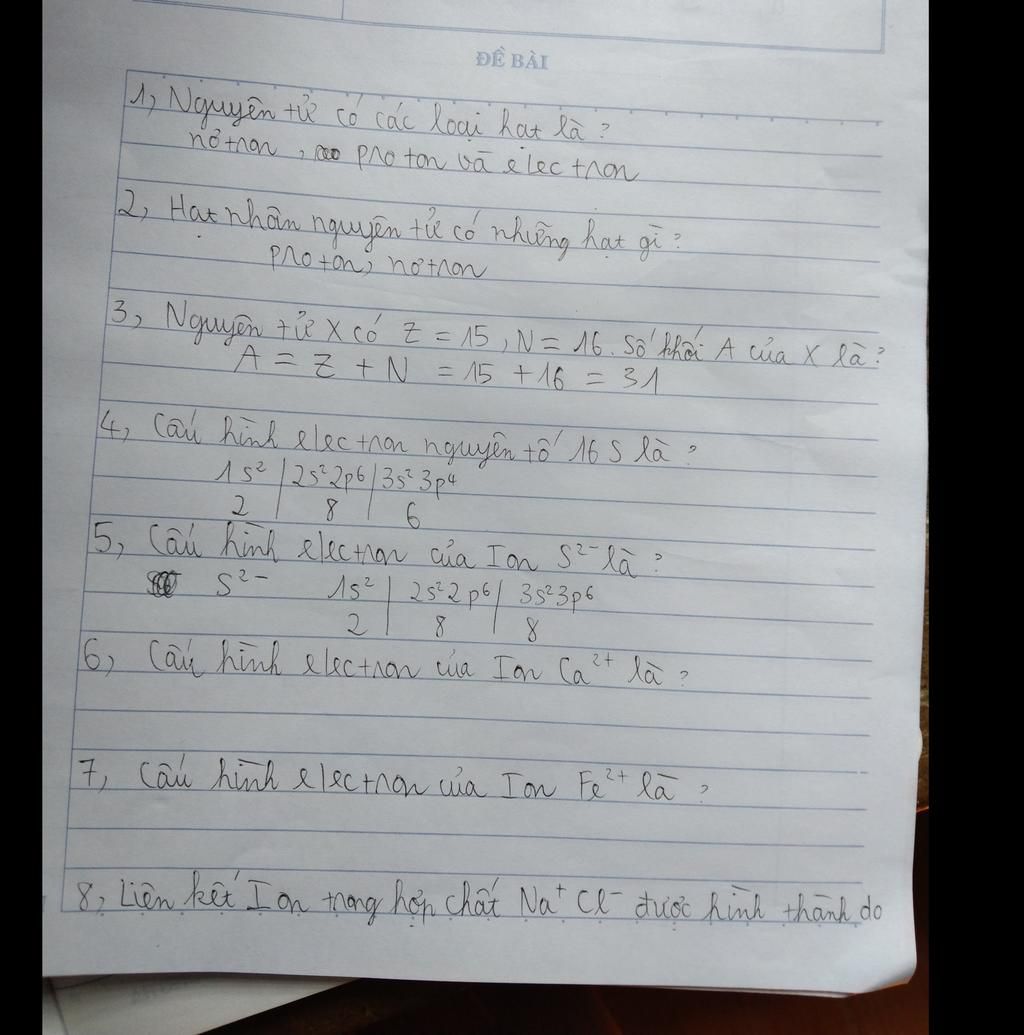 ĐỀ BÀI
1, Nguyên tử có các loại hạt là?
nơtron, proton và electron
2, Hạt nhân nguyên tử có những hạt gì?
proton, nơtron
3, Nguyên tử X có Z = 15, N = 16. Số khối A của X là?
A = Z + N = 15 + 16 = 31
4, Cấu hình electron nguyên tố 16 S là?
1s² | 2s² 2p⁶ | 3s² 3p⁴
2 | 8 | 6
5, Cấu hình electron của Ion S²⁻ là?
S²⁻ 1s² | 2s² 2p⁶ | 3s² 3p⁶
2 | 8 | 8
6, Cấu hình electron của Ion Ca²⁺ là?
7, Cấu hình electron của Ion Fe²⁺ là?
8, Liên kết Ion trong hợp chất Na⁺ Cl⁻ được hình thành do